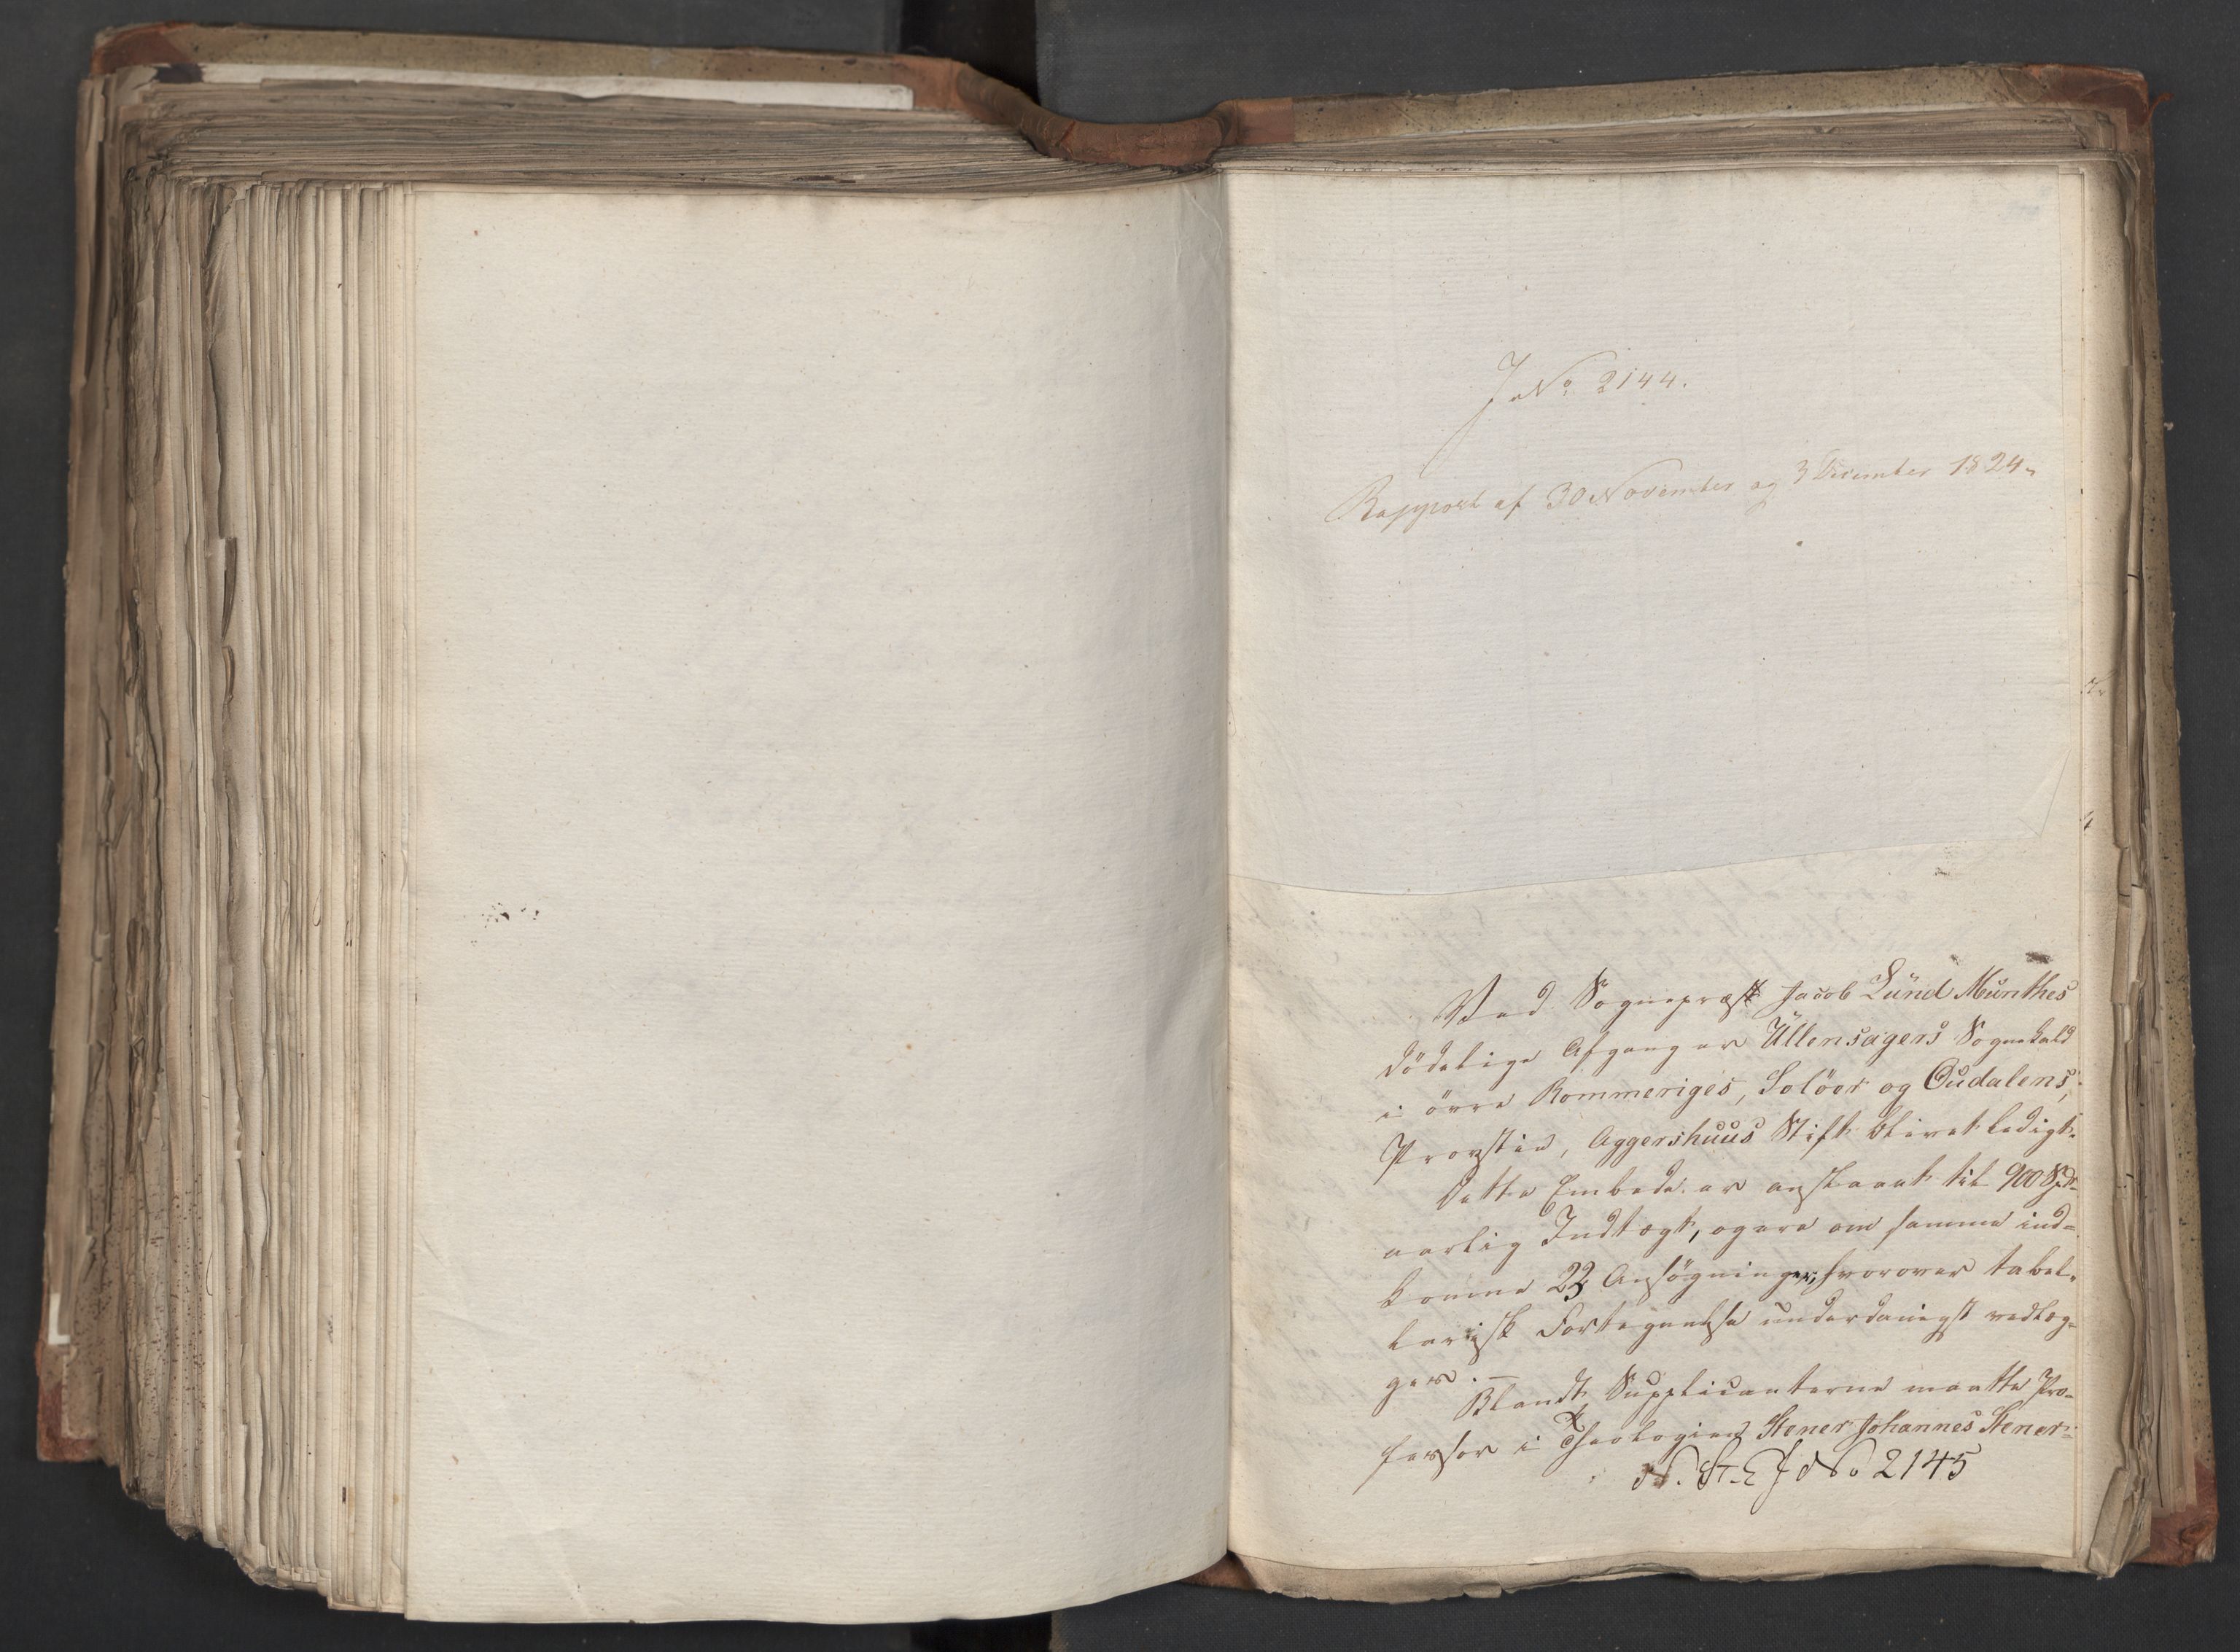 J. No. 2144.
Rapport af 30 November og 3 December 1824.
Ved Sognepræst Jacob Lund Munthes
dödelige Afgang er Ullensagers Sognekald
i övre Rommeriges, Solöer og Oudalens,
Provstie, Aggershuus Stift blevet ledigt.
Dette Embede er anslaaet til 900 Spd.
aarlig Indtægt, og ere om samme ind=
komne 23 Ansögninger, hvorover tabel=
larisk Fortegnelse underdanigst vedlæg=
ges. —
Blandt Supplicanterne maatte Pro=
fessor i Theologien Stener Johannes Stener=
N. St. E J No 2145